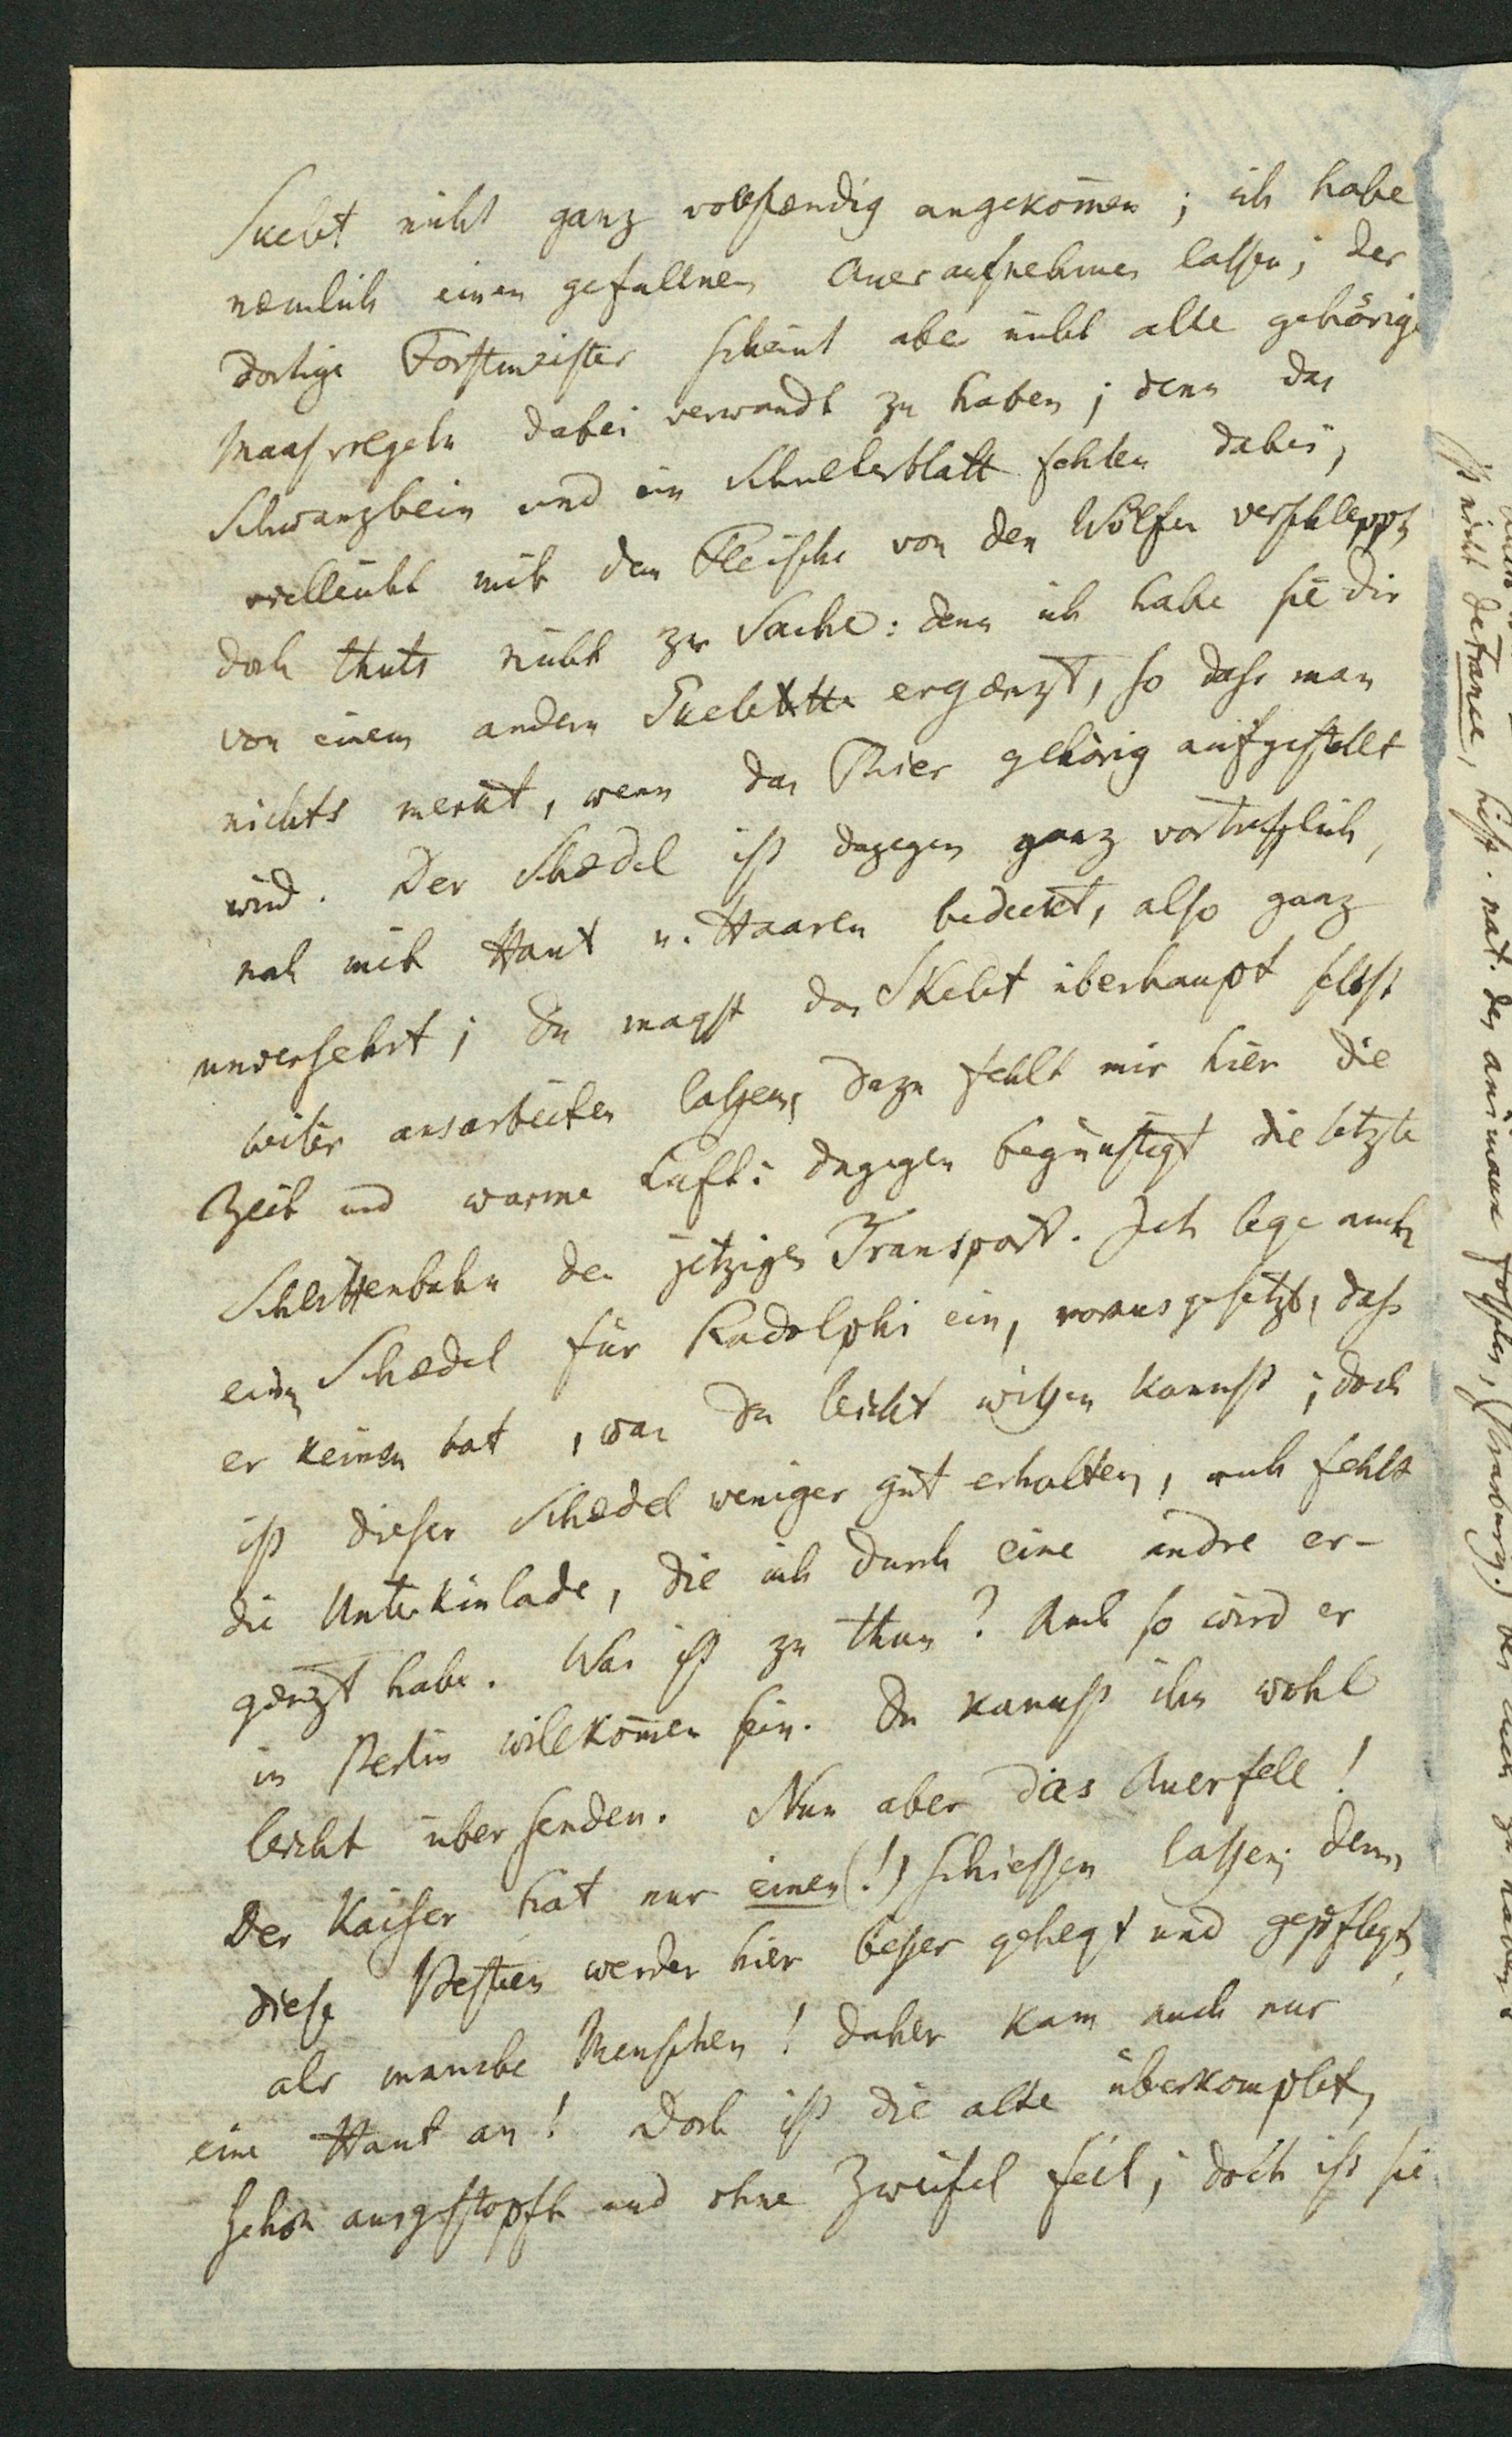 Skelet nicht ganz vollstændig angekom̄en; ich habe
næmlich einen gefallnen Auer aufnehmen lassen; der
dortige Forstmeister scheint aber nicht alle gehörige
Maasregeln dabei verwandt zu haben; denn das
Schwanzbein und ein Schulterblatt fehlen dabei,
vielleicht mit dem Fleische von den Wölfen verschleppt,
doch thuts nicht zur Sache: denn ich habe sie dir
von einem andern Skelette ergænzt, so dass man
nichts merkt, wenn das Thier gehörig aufgestellt
wird. Der Schædel ist dagegen ganz vortreflich,
noch mit Haut u. Haaren bedeckt, also ganz
unversehrt; du magst das Skelet überhaupt selbst
weiter ausarbeiten lassen, dazu fehlt mir hier die
Zeit und warme Luft: dagegen begünstigt die letzte
Schlittenbahn den jetzigen Transport. Ich lege auch
einen Schædel für Rudolphi ein, vorausgesetzt, dass
er keinen hat, was du leicht wissen kannst; doch
ist dieser Schædel weniger gut erhalten, auch fehlt
die Unterkinlade, die ich durch eine andre er-
gænzt habe. Was ist zu thun? Auch so wird er
in Berlin willkom̄en sein. Du kannst ihn wohl
leicht übersenden. Nun aber das Auerfell!
Der Kaiser hat nur einen(!) schiessen lassen; denn
diese Bestien werden hier besser gehegt und gepflegt,
als manche Menschen! daher kam auch nur
eine Haut an! Doch ist die alte überkomplet,
schon ausgestopft und ohne Zweifel feil; doch ist sie
ist nicht de France, hist. nat. des animaux fossiles, (Strasburg.)